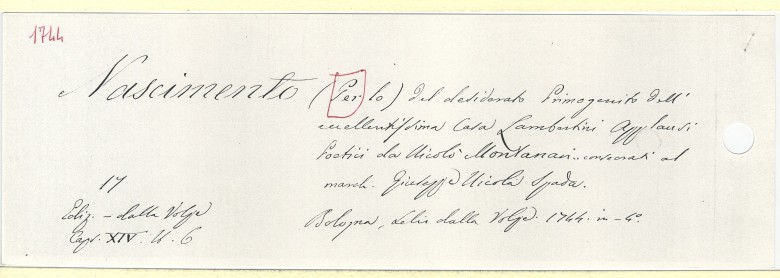 1744
Nascimento (Per lo) del desiderato Primogenito dell'
eccellentissima Casa Lambertini Applausi
Poetici da Nicolò Montanari.. consecrati al
march. Giuseppe Nicola Spada.
17
Ediz. - dalla Volpe
Cap. XIV. N. 6
Bologna, Lelio dalla Volpe. 1744. in-4°.